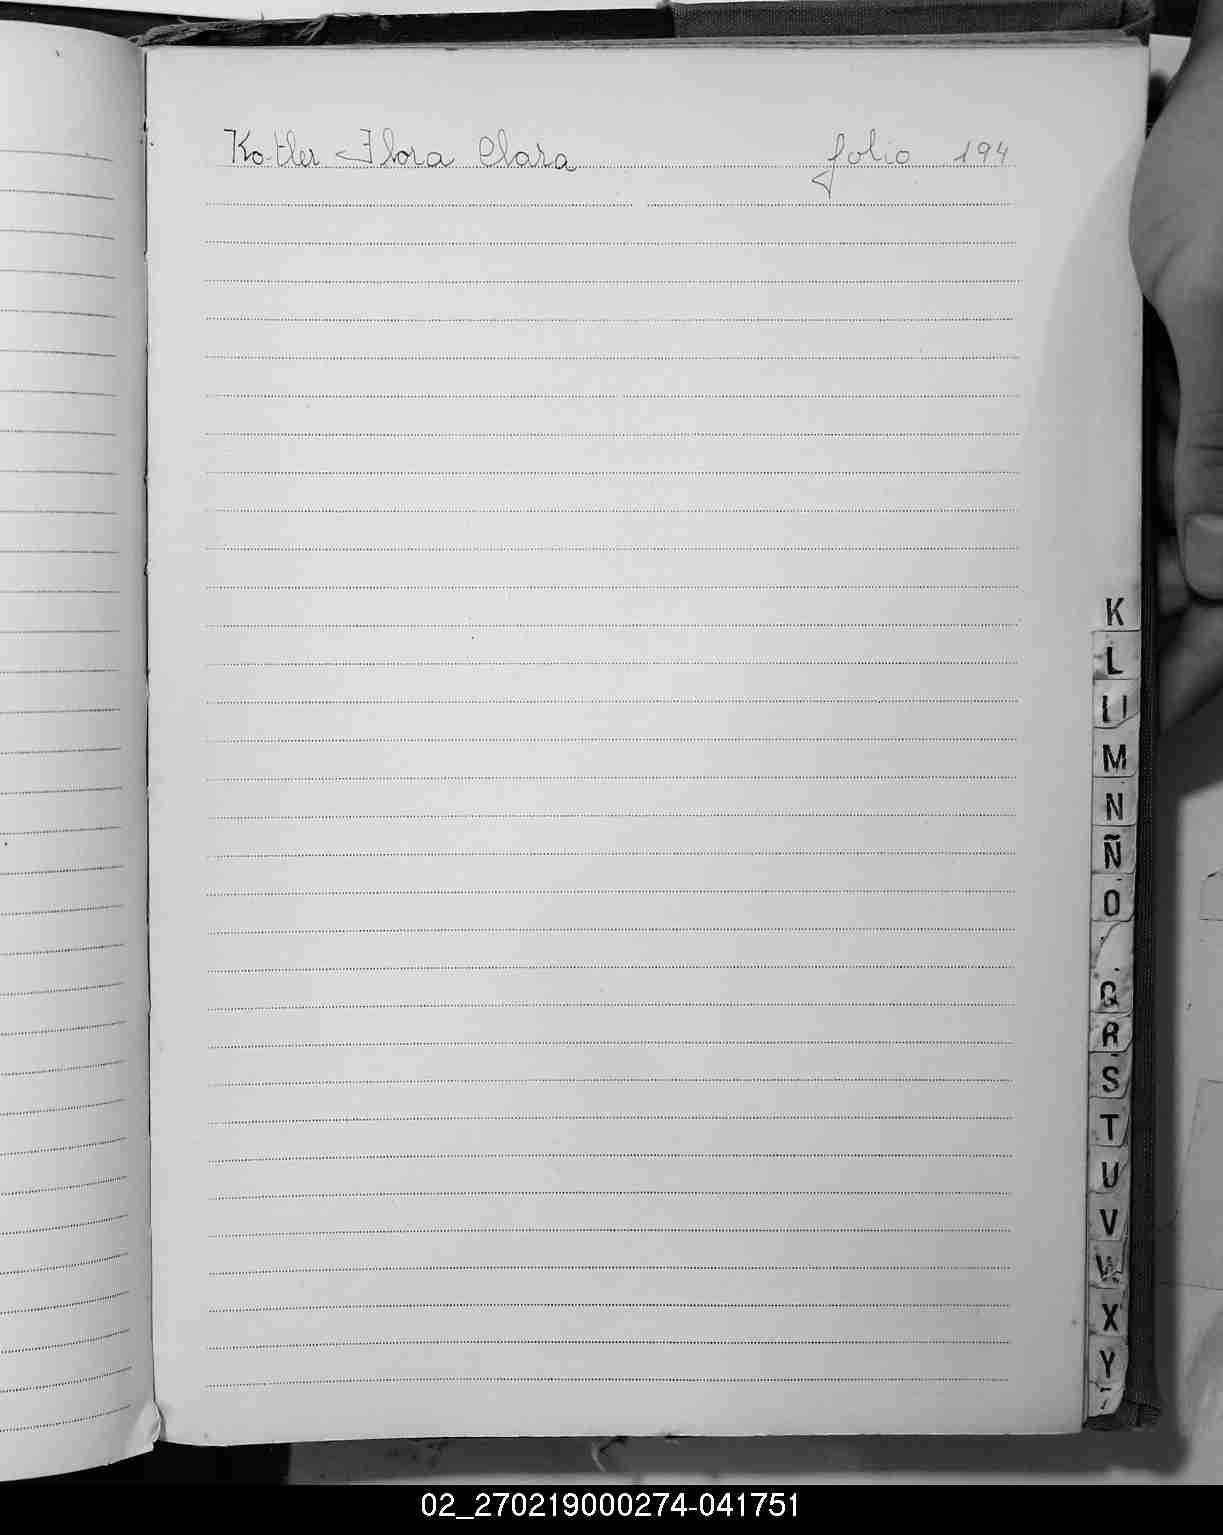 Kotler Flora Clara folio 194
K
L
Ll
M
N
Ñ
O
Q
R
S
T
U
V
W
X
Y
02_270219000274-041751